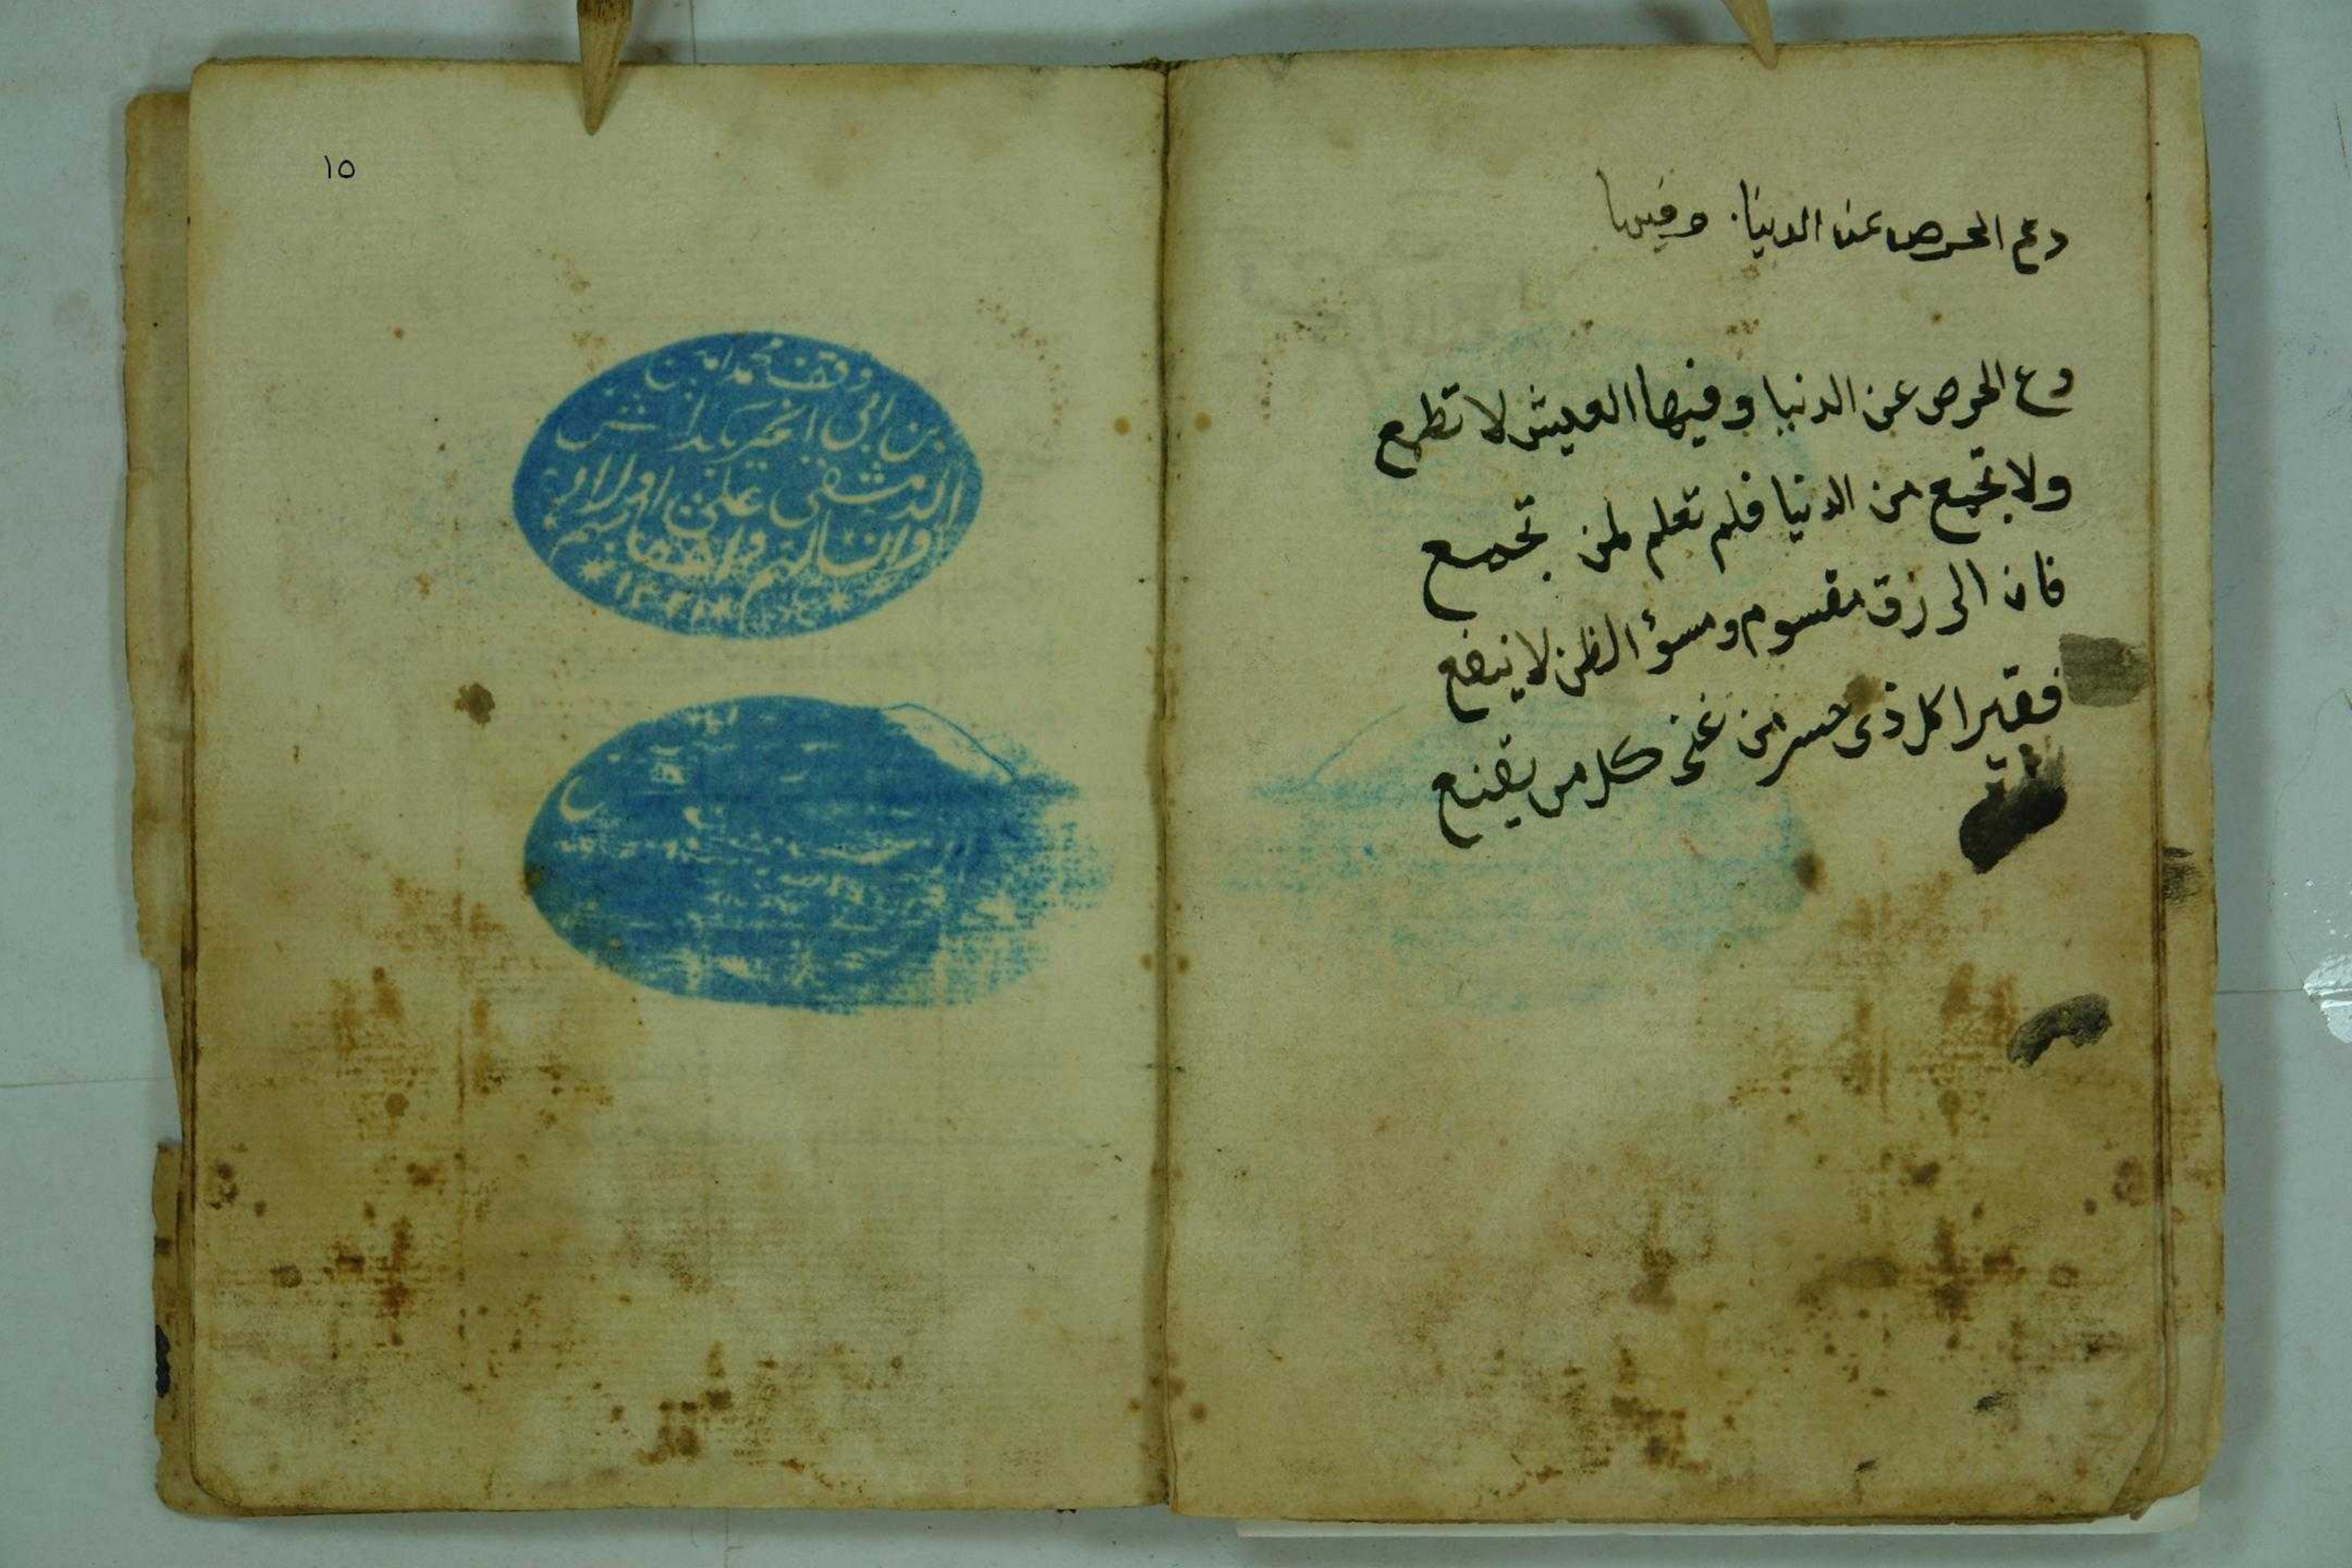 دع الحرص عن الدنيا وفيها
دع الحرص عن الدنيا وفيها العيش لا تطمع
ولا تجمع من الدنيا فلم تعلم لمن تجمع
فان الرزق مقسوم وسؤ الظن لا ينفع
فقيرا كل ذى حرص غنى كل من يقنع
١٥
وقف محمد امين
بن ابى الخير
الدمشقى على اولاد